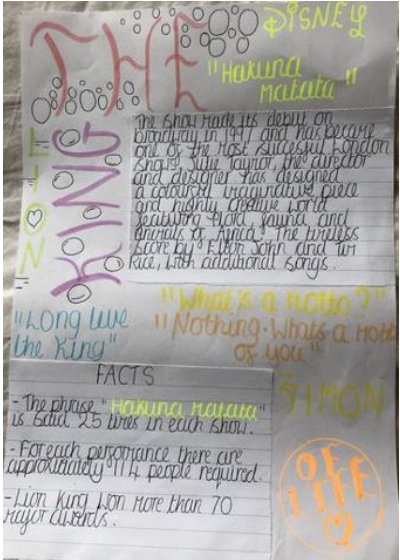 THE
DISNEY
"Hakuna
Matata"
LION
KING
The show made its debut on
broadway in 1997 and has became
one of the most succesful London
shows. Julie Taynor, the director
and designer has designed
a colourful imaginative piece
and highly creative world
featuring flora, fauna and
animals of Africa. The timeless
score by Elton John and Tim
Rice, with additional songs.
"What's a motto?"
"Nothing. Whats a motto
of you"
"Long live
the King"
TIMON
FACTS
- The phrase "Hakuna Matata"
is said 25 times in each show.
- For each performance there are
approximately 114 people required.
- Lion King won more than 70
major awards.
OF
LIFE